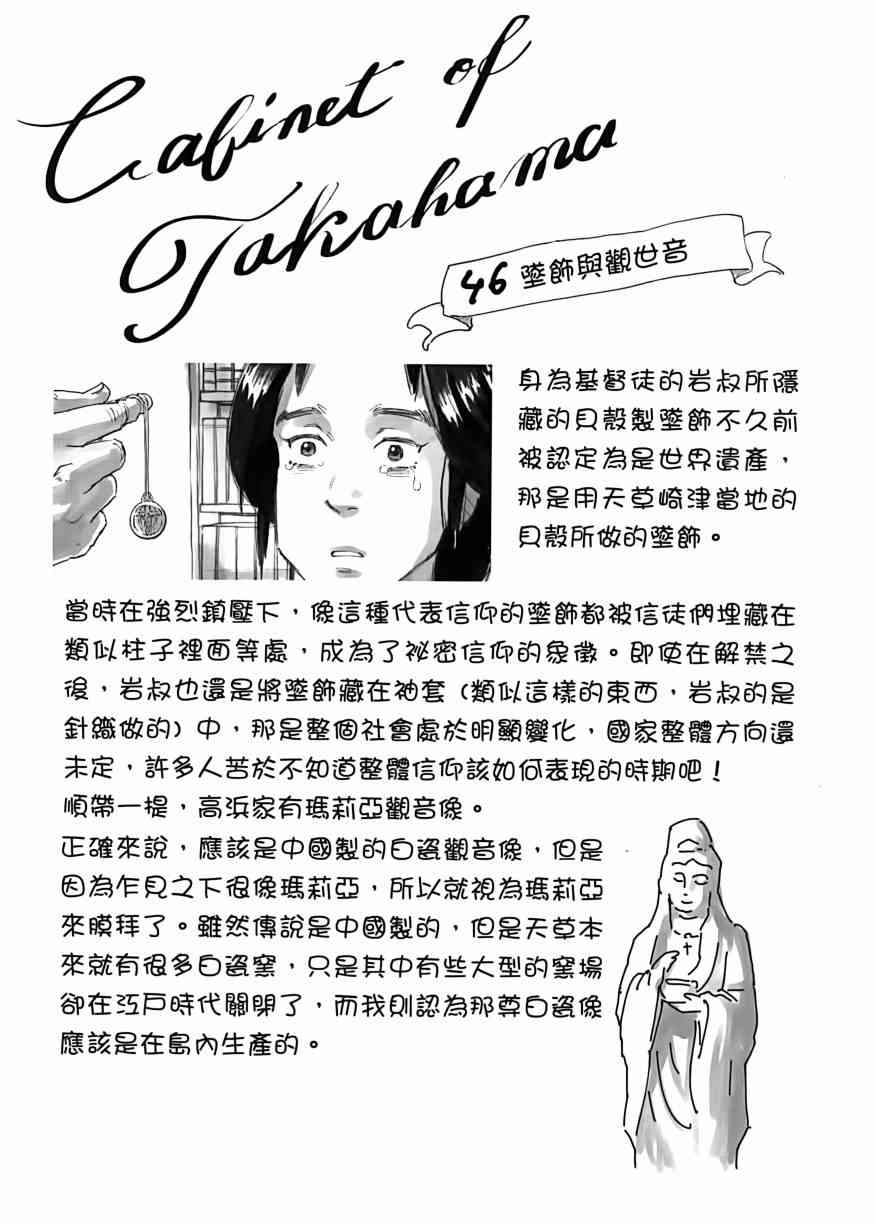 Cabinet of
Takahama
46 墜飾與觀世音
身為基督徒的岩叔所隱
藏的貝殼製墜飾不久前
被認定為是世界遺產，
那是用天草崎津當地的
貝殼所做的墜飾。
當時在強烈鎮壓下，像這種代表信仰的墜飾都被信徒們埋藏在
類似柱子裡面等處，成為了祕密信仰的象徵。即使在解禁之
後，岩叔也還是將墜飾藏在袖套（類似這樣的東西，岩叔的是
針織做的）中，那是整個社會處於明顯變化，國家整體方向還
未定，許多人苦於不知道整體信仰該如何表現的時期吧！
順帶一提，高浜家有瑪莉亞觀音像。
正確來說，應該是中國製的白瓷觀音像，但是
因為乍見之下很像瑪莉亞，所以就視為瑪莉亞
來膜拜了。雖然傳說是中國製的，但是天草本
來就有很多白瓷窯，只是其中有些大型的窯場
卻在江戶時代關閉了，而我則認為那尊白瓷像
應該是在島內生產的。